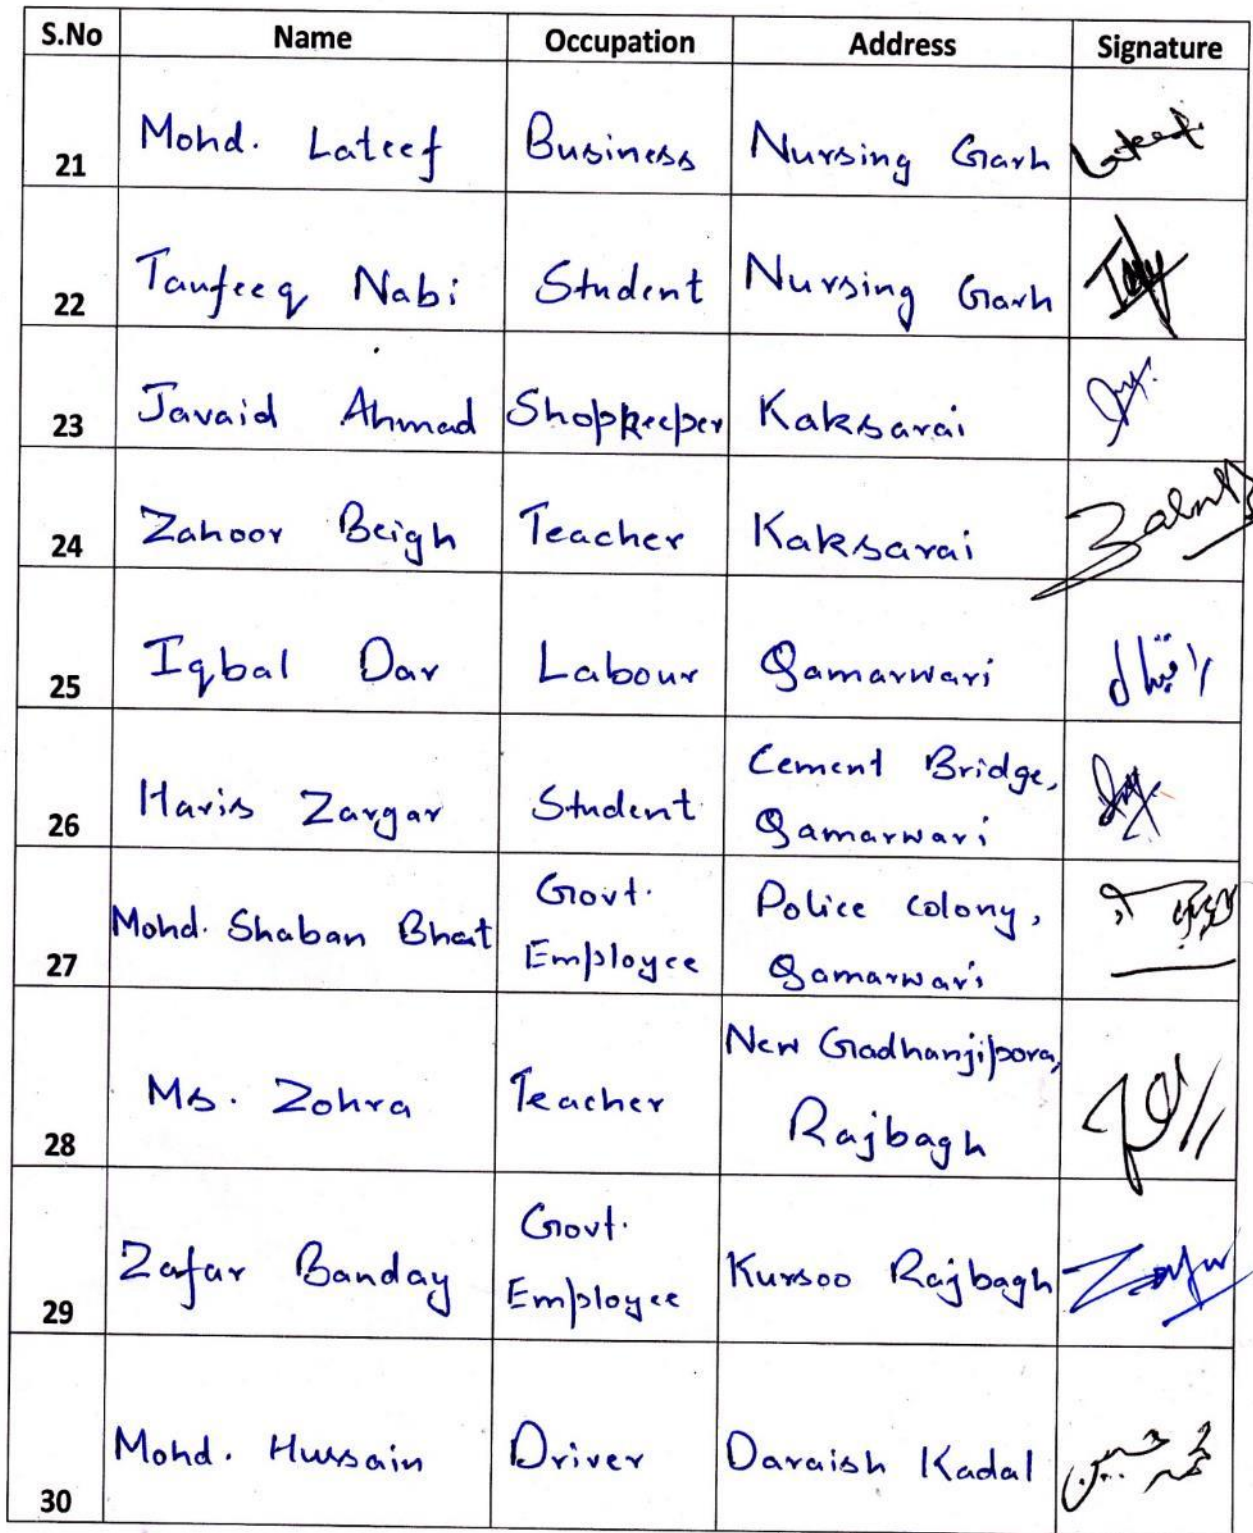 S.No Name Occupation Address Signature
21 Mohd. Lateef Business Nursing Garh Lateef
22 Taufeeq Nabi Student Nursing Garh
23 Javaid Ahmad Shopkeeper Kaksarai
24 Zahoor Beigh Teacher Kaksarai
25 Iqbal Dar Labour Qamarwari اقبال
26 Haris Zargar Student Cement Bridge,
Qamarwari
27 Mohd. Shaban Bhat Govt. Police Colony,
Employee Qamarwari
28 Ms. Zohra Teacher New Gadhanjipora,
Rajbagh
29 Zafar Banday Govt. Kursoo Rajbagh Zafar
Employee
30 Mohd. Hussain Driver Daraish Kadal محمد حسین